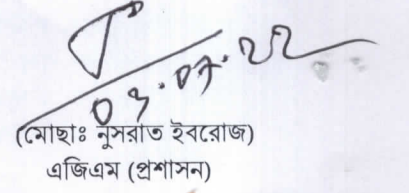 ০৭.০৭.২২
(মোছাঃ নুসরাত ইবরোজ)
এজিএম (প্রশাসন)